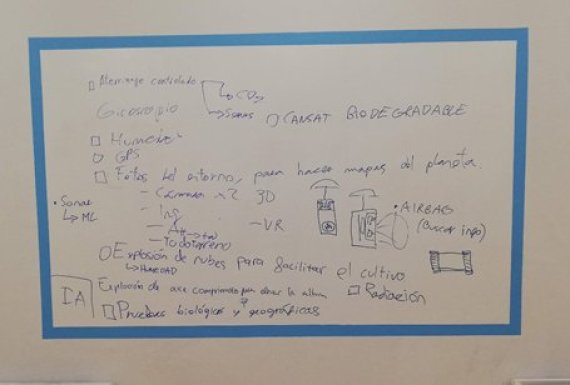 Aterrizaje controlado
CO2
Giroscopio
Sonar
CANSAT BIODEGRADABLE
Humedad
GPS
Fotos del entorno, para hacer mapas del planeta.
- Cámara x2 3D
• Sonar
ML
- VR
- Todoterreno
• AIRBAG
(Buscar info)
Explosión de nubes para facilitar el cultivo
HUMEDAD
Explosión de aire comprimido para la
Radiación
IA
Pruebas biológicas y geográficas